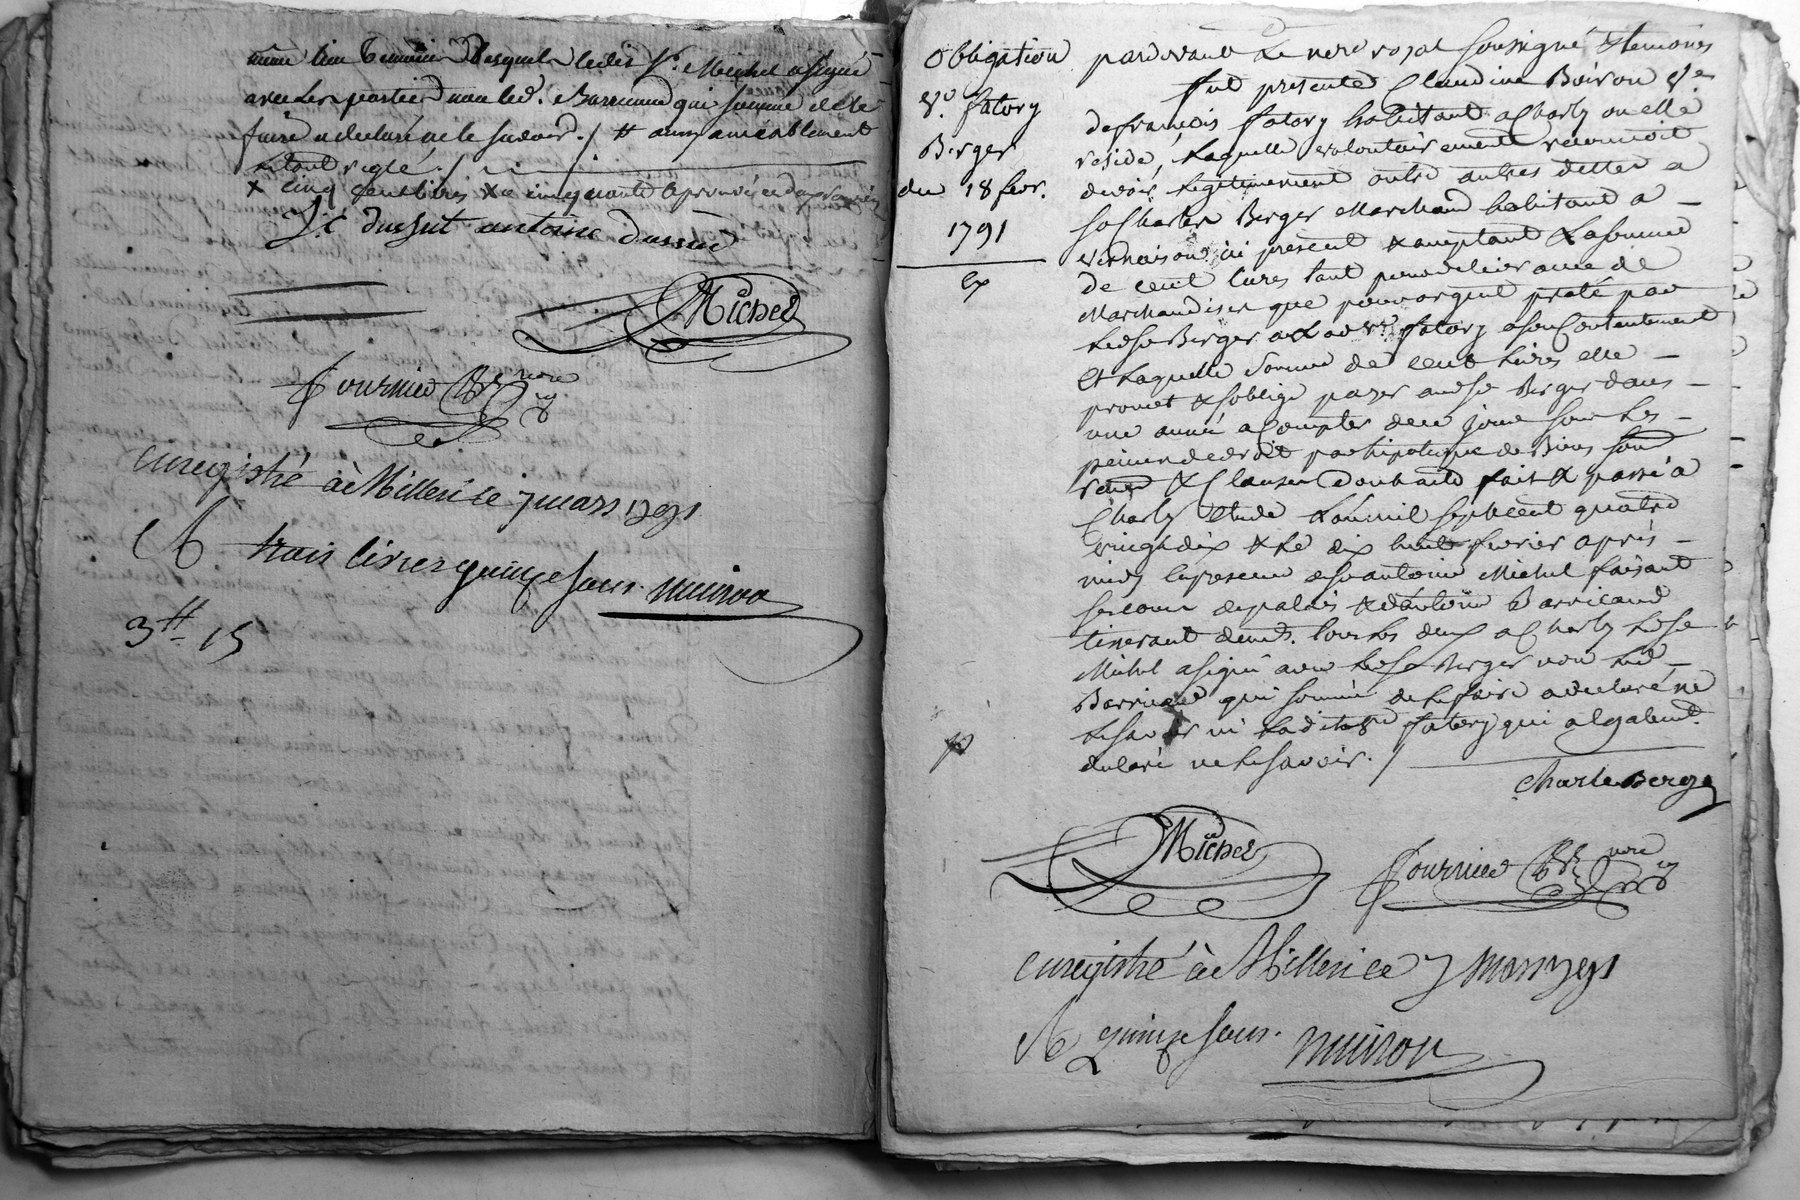 même lieu témoins lesquels ledit Sr. Michel a signé
avec les parties non led. Barricand qui sommé de le
faire a declaré ne le savoir ./ # aussy amiablement
entant reglé ./
x cinq cent livres x cinquante approuvé
J.C dussut antoine dussud
Michel
fournier nore
enregistré à Millerice 7 mars 1791
R trois livres quinze sous. muiron
3# 15
Obligation
Ve. fatory
Berger
du 18 fevr.
1791
ex
pardevant Le nore royal soussigné & temoins
fut presente Claudine Boiron Ve
de francois fatory habitant a Charly ou elle
reside, Laquelle volontairement reconnoit
devoir Legitimement outre autres dettes a
sr Charles Berger Marchand habitant a
vernaison ici present & acceptant La somme
de cent livres tant pour delivrance de
Marchandises que pour argent preté par
Led sr Berger a Lad ve fatory a son Contentement
Et Laquelle somme de cent Livres elle
promet & s'oblige payer aud sr Berger dans
une année a Compter de ce jour sous Les
peines de droit par hipoteque de Biens soumi
& Clauses fait & passé a
Charly Etude L'an mil sept cent quatre
vingt dix & Le dix huit fevrier après
midy En presence de sr antoine Michel faisant
ses cours de palais & d'antoine Barricand
tisserant demt. tous Les deux a Charly Led sr
Michel a signé avec Led sr Berger non Led
Barricand qui sommé de Le faire a declaré ne
Le savoir ni Ladite ve fatory qui a egalemt.
declaré ne Le savoir ./
Charle Berger
Michel
fournier nore
enregistré à Millerice 7 mars 1791
R quinze sous. muiron